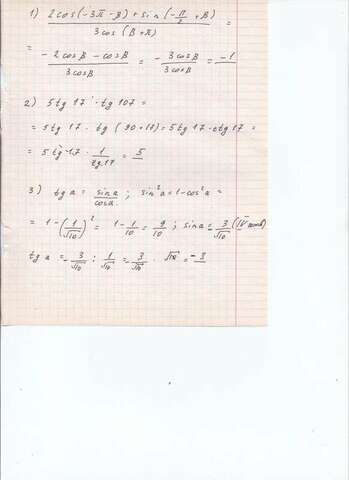 1) (2cos(-3π-β)+sin(-π/2+β))/(3cos(β+π)) =
= (-2cosβ-cosβ)/(3cosβ) = -(3cosβ)/(3cosβ) = -1
2) 5tg 17 · tg 107 =
= 5 tg 17 · tg (90+17)=5tg 17·ctg 17 =
= 5 tg 17 · 1/(tg 17) = 5
3) tg a = sina/cosa ; sin²a=1-cos²a =
= 1-(1/√10)² = 1-1/10 = 9/10 ; sina=-3/√10 (IV
tg a = -3/√10 : 1/√10 = -3/√10 · √10 = -3